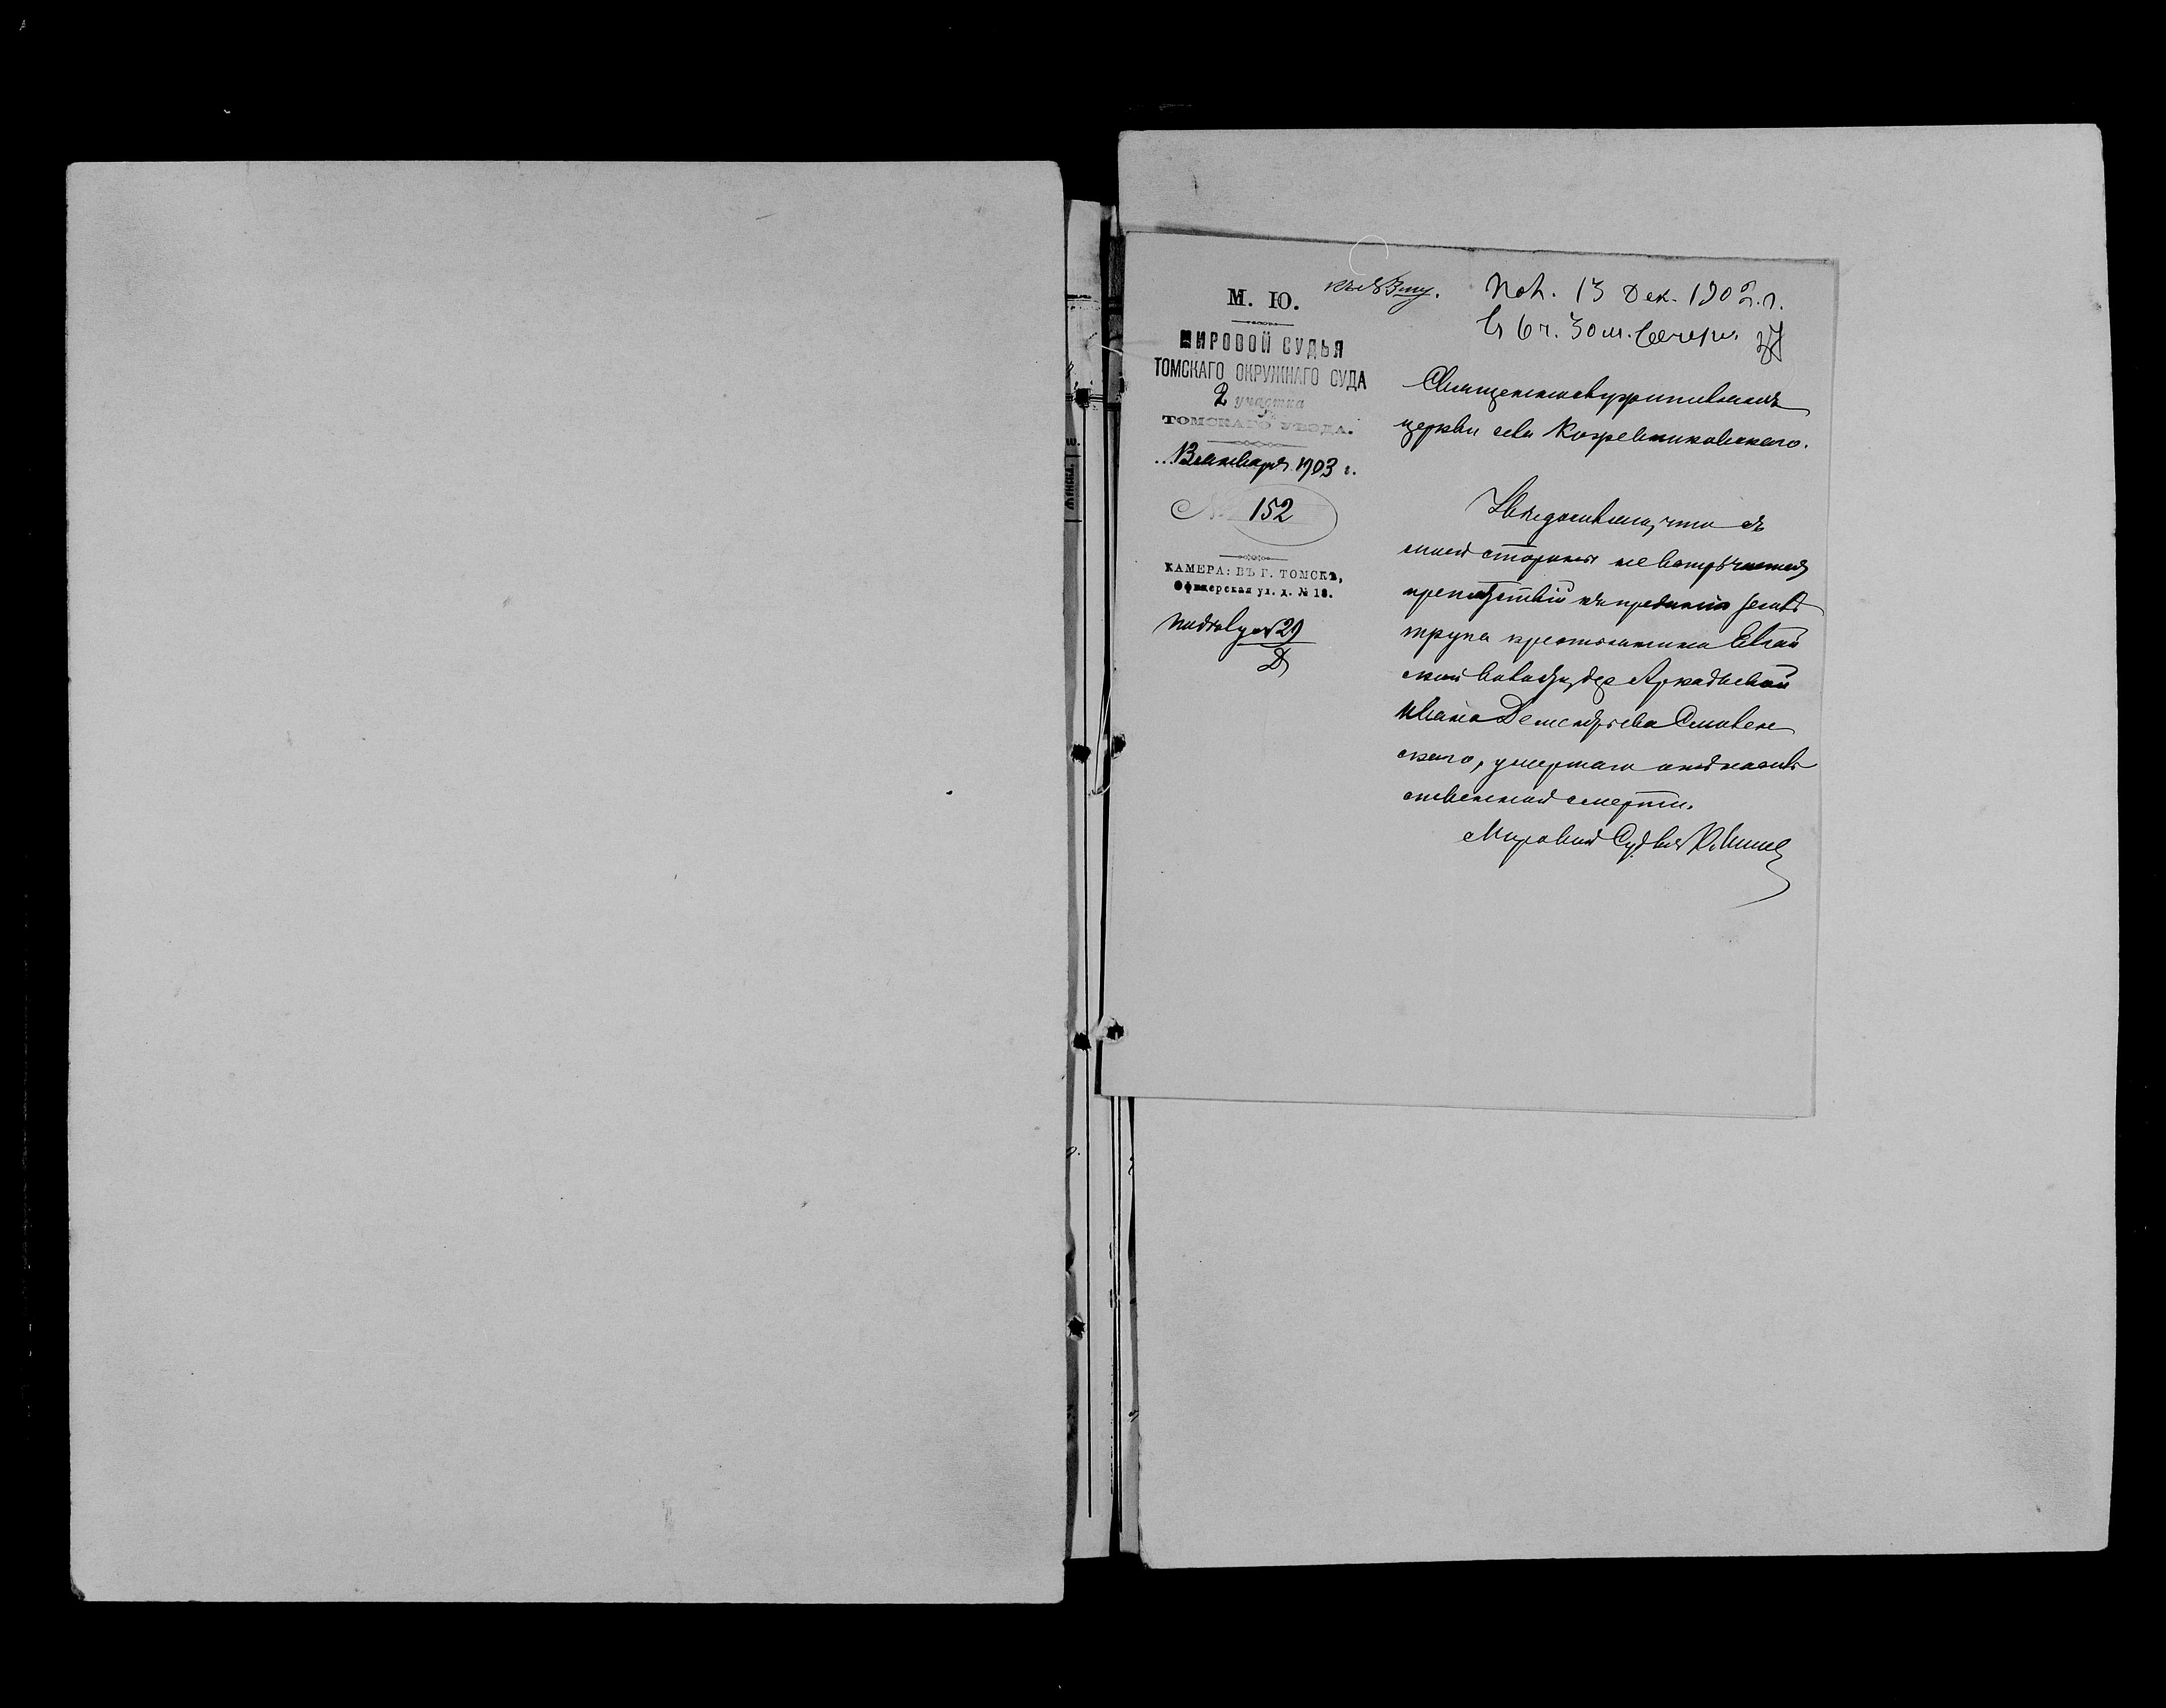 М. Ю.
МИРОВОЙ СУДЬЯ
ТОМСКАГО ОКРУЖНАГО СУДА
2 участка
ТОМСКАГО УѢЗДА.
13 января 1903 г.
№ 152
КАМЕРА: ВЪ Г. ТОМСКѢ,
Офицерская ул. д. № 18.
29
Пол. 13 Дек. 1902 г.
въ 6 ч. 30 м. вечера
Священнослужителямъ
церкви села Кожевниковскаго.
Увѣдомляю, что съ
моей стороны не встрѣчается
препятствій къ преданію землѣ
трупа крестьянина
ской волости, дер. Аркадьевой
Ивана Дементьева
скаго, умершаго
ственной смертью.
Мировой Судья